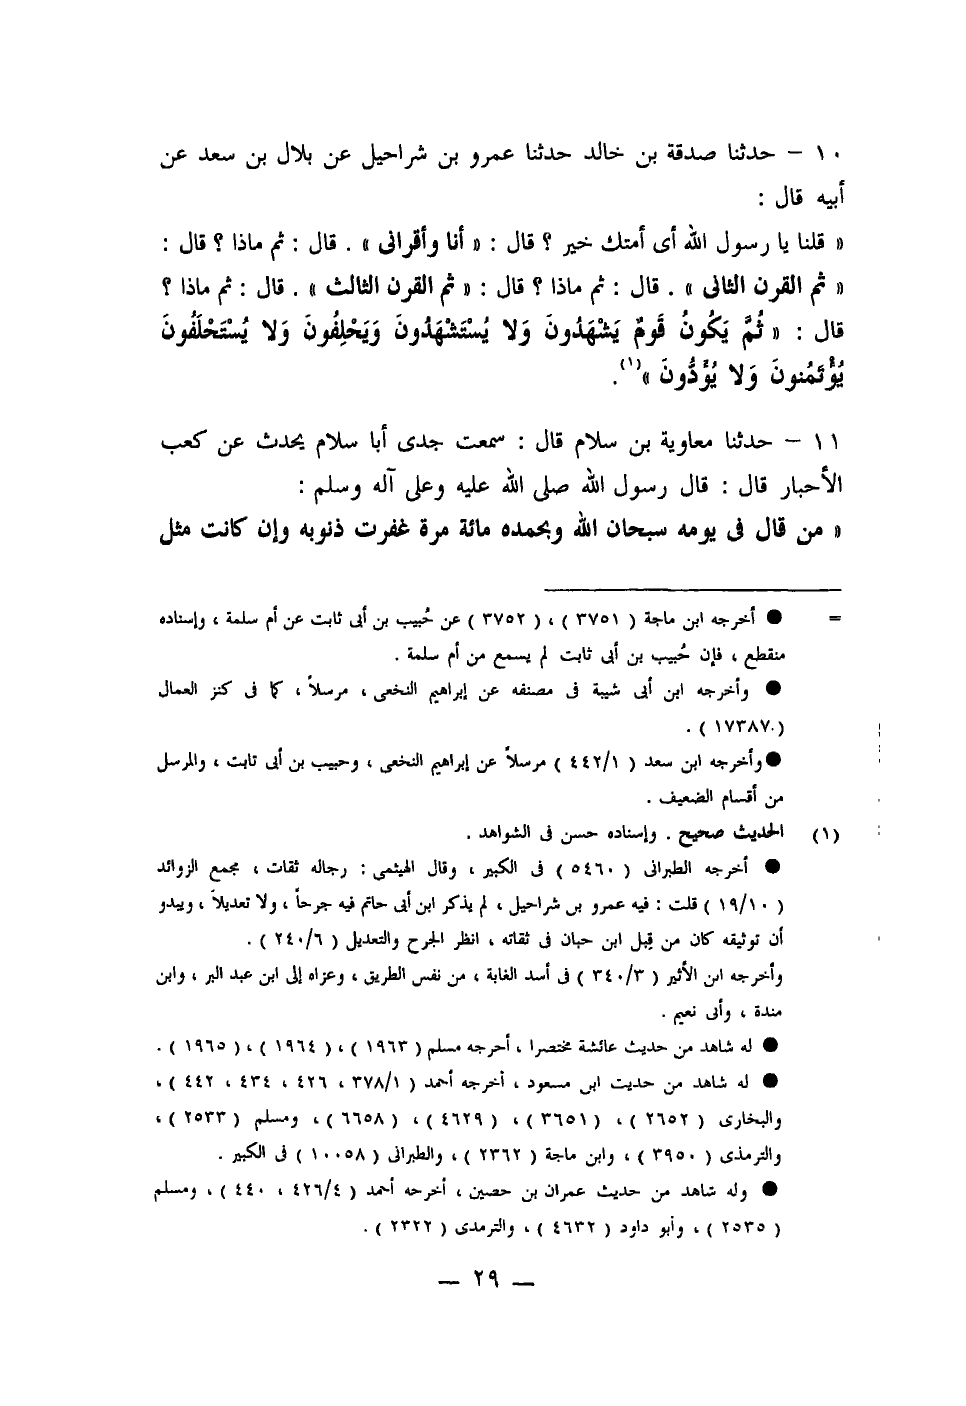 ١٠ – حدثنا صدقة بن خالد حدثنا عمرو بن شراحيل عن بلال بن سعد عن
أبيه قال :
« قلنا يا رسول الله أى أمتك خير ؟ قال : « أنا وأقرانى » . قال : ثم ماذا ؟ قال :
« ثم القرن الثانى » . قال : ثم ماذا ؟ قال : « ثم القرن الثالث » . قال : ثم ماذا ؟
قال : « ثُمَّ يَكُونُ قَومٌ يَشْهَدُونَ وَلا يُسْتَشْهَدُونَ وَيَحْلِفُونَ وَلا يُسْتَحْلَفُونَ
يُؤْتَمُنونَ وَلا يُؤَدُّونَ »(١).
١١ – حدثنا معاوية بن سلام قال : سمعت جدى أبا سلام يحدث عن كعب
الأحبار قال : قال رسول الله صلى الله عليه وعلى آله وسلم :
« من قال فى يومه سبحان الله وبحمده مائة مرة غفرت ذنوبه وإن كانت مثل
= ● أخرجه ابن ماجة ( ٣٧٥١ ) ، ( ٣٧٥٢ ) عن حُبيب بن أبى ثابت عن أم سلمة ، وإسناده
منقطع ، فإن حُبيب بن أبى ثابت لم يسمع من أم سلمة .
● وأخرجه ابن أبى شيبة فى مصنفه عن إبراهيم النخعى ، مرسلاً ، كما فى كنز العمال
(١٧٣٨٧٠ ) .
● وأخرجه ابن سعد ( ٤٤٢/١ ) مرسلاً عن إبراهيم النخعى ، وحبيب بن أبى ثابت ، والمرسل
من أقسام الضعيف .
(١) الحديث صحيح . وإسناده حسن فى الشواهد .
● أخرجه الطبرانى ( ٥٤٦٠ ) فى الكبير ، وقال الهيثمى : رجاله ثقات ، مجمع الزوائد
( ١٩/١٠ ) قلت : فيه عمرو بن شراحيل ، لم يذكر ابن أبى حاتم فيه جرحاً ، ولا تعديلاً ، ويبدو
أن توثيقه كان من قِبل ابن حبان فى ثقاته ، انظر الجرح والتعديل ( ٢٤٠/٦ ) .
وأخرجه ابن الأثير ( ٣٤٠/٣ ) فى أسد الغابة ، من نفس الطريق ، وعزاه إلى ابن عبد البر ، وابن
مندة ، وأبى نعيم .
● له شاهد من حديث عائشة مختصرا ، أخرجه مسلم ( ١٩٦٣ ) ، ( ١٩٦٤ ) ، ( ١٩٦٥ ) .
● له شاهد من حديث ابن مسعود ، أخرجه أحمد ( ٣٧٨/١ ، ٤٢٦ ، ٤٣٤ ، ٤٤٢ ) ،
والبخارى ( ٢٦٥٢ ) ، ( ٣٦٥١ ) ، ( ٤٦٢٩ ) ، ( ٦٦٥٨ ) ، ومسلم ( ٢٥٣٣ ) ،
والترمذى ( ٣٩٥٠ ) ، وابن ماجة ( ٢٣٦٢ ) ، والطبرانى ( ١٠٠٥٨ ) فى الكبير .
● وله شاهد من حديث عمران بن حصين ، أخرجه أحمد ( ٤٢٦/٤ ، ٤٤٠ ) ، ومسلم
( ٢٥٣٥ ) ، وأبو داود ( ٤٦٣٢ ) ، والترمدى ( ٢٣٢٢ ) .
— ٢٩ —